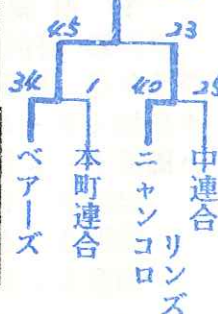 45 23
34 1 40 25
ベアーズ
本町連合
ニャンコロ
リンズ
中連合